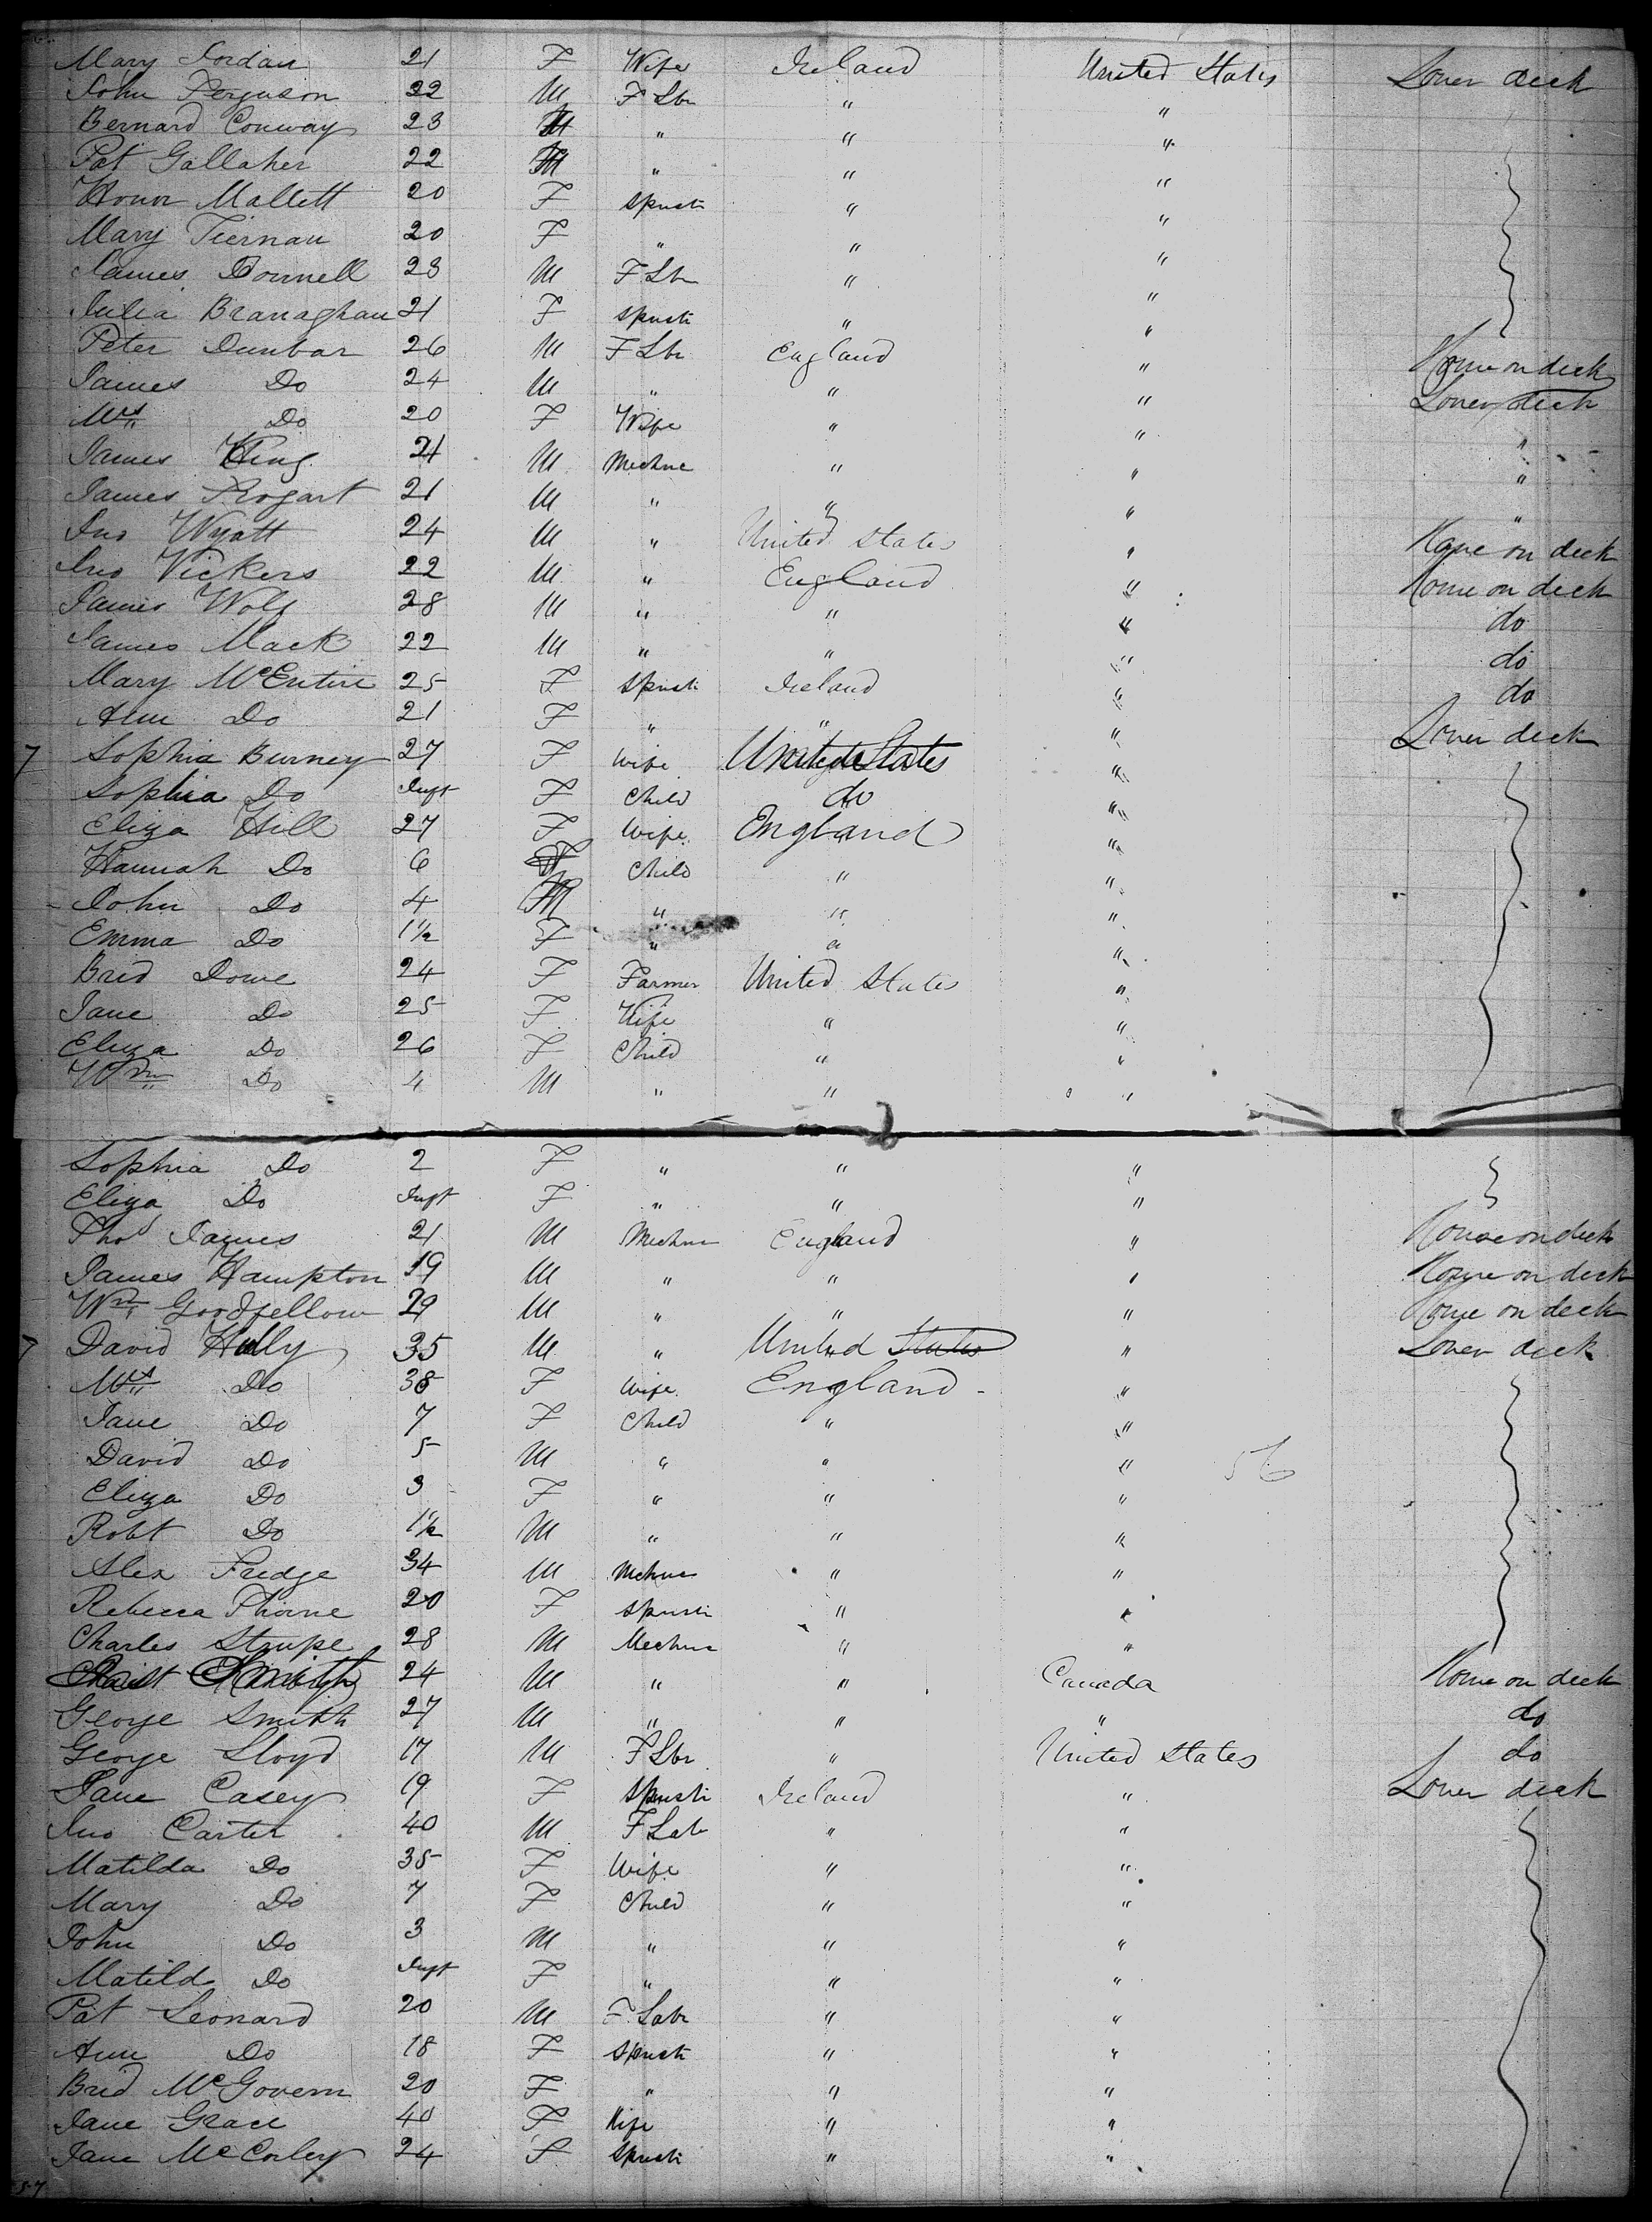 Mary Jordan 21 F Wife Ireland United States Lower deck
John Ferguson 22 M F Lbr " "
Bernard Conway 23 M " " "
Pat Gallaher 22 M " " "
Honor Mallett 20 F Spnstr " "
Mary Tiernan 20 F " " "
James Donnell 23 M F Lbr " "
Julia Branaghan 21 F Spnstr " "
Peter Dunbar 26 M F Lbr England " House on deck
James Do 24 M " " " Lower deck
Mrs Do 20 F Wife " " "
James King 21 M Mechnc " " "
James Hogart 21 M " " " "
Jno Wyatt 24 M " United States " House on deck
Jno Vickers 22 M " England " House on deck
James Wolf 28 M " " " do
James Mack 22 M " " " do
Mary McEntire 25 F Spnstr Ireland " do
Ann Do 21 F " " " Lower deck
7 Sophia Burney 27 F Wife United States "
Sophia Do Inft F Child do "
Eliza Hill 27 F Wife England "
Hannah Do 6 F Child " "
John Do 4 M " " "
Emma Do 1½ F " " "
Brid Dowe 24 F Farmer United States "
Jane Do 25 F Wife " "
Eliza Do 26 F Child " "
Wm Do 4 M " " "
Sophia Do 2 F " " "
Eliza Do Inft F " " "
Thos James 21 M Mechnc England " House on deck
James Hampton 19 M " " " House on deck
Wm Goodfellow 29 M " " " House on deck
7 David Hully 35 M " United States " Lower deck
Mrs Do 38 F Wife England "
Jane Do 7 F Child " "
David Do 5 M " " " 56
Eliza Do 3 F " " "
Robt Do 1½ M " " "
Alex Fredge 34 M Mchnc " "
Rebecca Thorne 20 F Spnstr " "
Charles Strupe 28 M Mechnc " "
Smith 24 M " " Canada House on deck
George Smith 27 M " " " do
George Lloyd 17 M F Lbr " United States do
Jane Casey 19 F Spnstr Ireland " Lower deck
Jno Carter 40 M F Lab " "
Matilda Do 35 F Wife " "
Mary Do 7 F Child " "
John Do 3 M " " "
Matilda Do Inft F " " "
Pat Leonard 20 M F Labr " "
Ann Do 18 F Spnstr " "
Brid McGovern 20 F " " "
Jane Grace 40 F Wife " "
Jane McCorley 24 F Spnstr " "
57